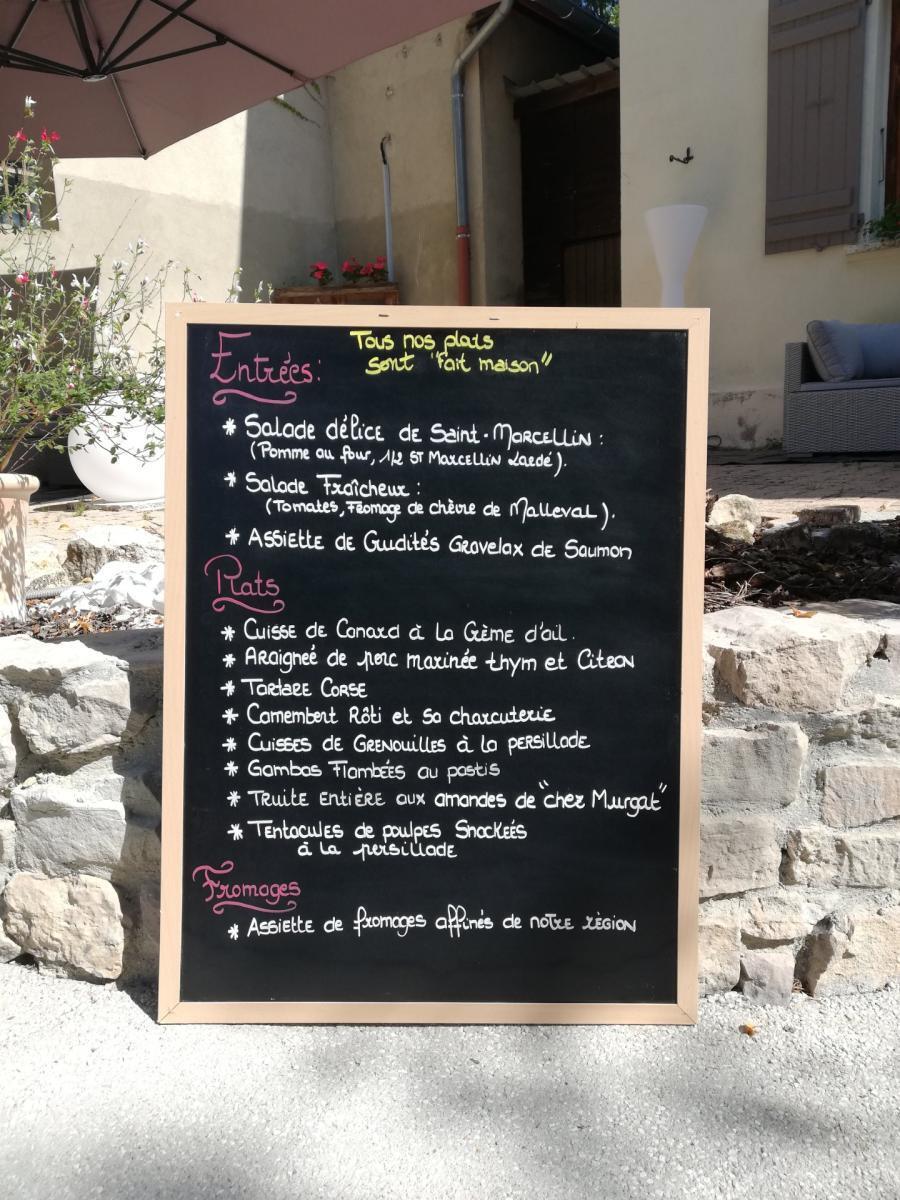 Entrées:
Tous nos plats
sont "fait maison"
* Salade délice de Saint-Marcellin :
(Pomme au four, 1/2 ST Marcellin Lardé).
* Salade Fraîcheur :
(Tomates, Fromage de chèvre de Malleval).
* Assiette de Crudités Gravelax de Saumon
Plats
* Cuisse de Canard à la Crème d'ail.
* Araigneé de porc marinée thym et Citron
* Tartare Corse
* Camembert Rôti et sa charcuterie
* Cuisses de Grenouilles à la persillade
* Gambas Flambées au pastis
* Truite Entière aux amandes de "chez Murgat"
* Tentacules de poulpes Snackeés
à la persillade
Fromages
* Assiette de fromages affinés de notre région